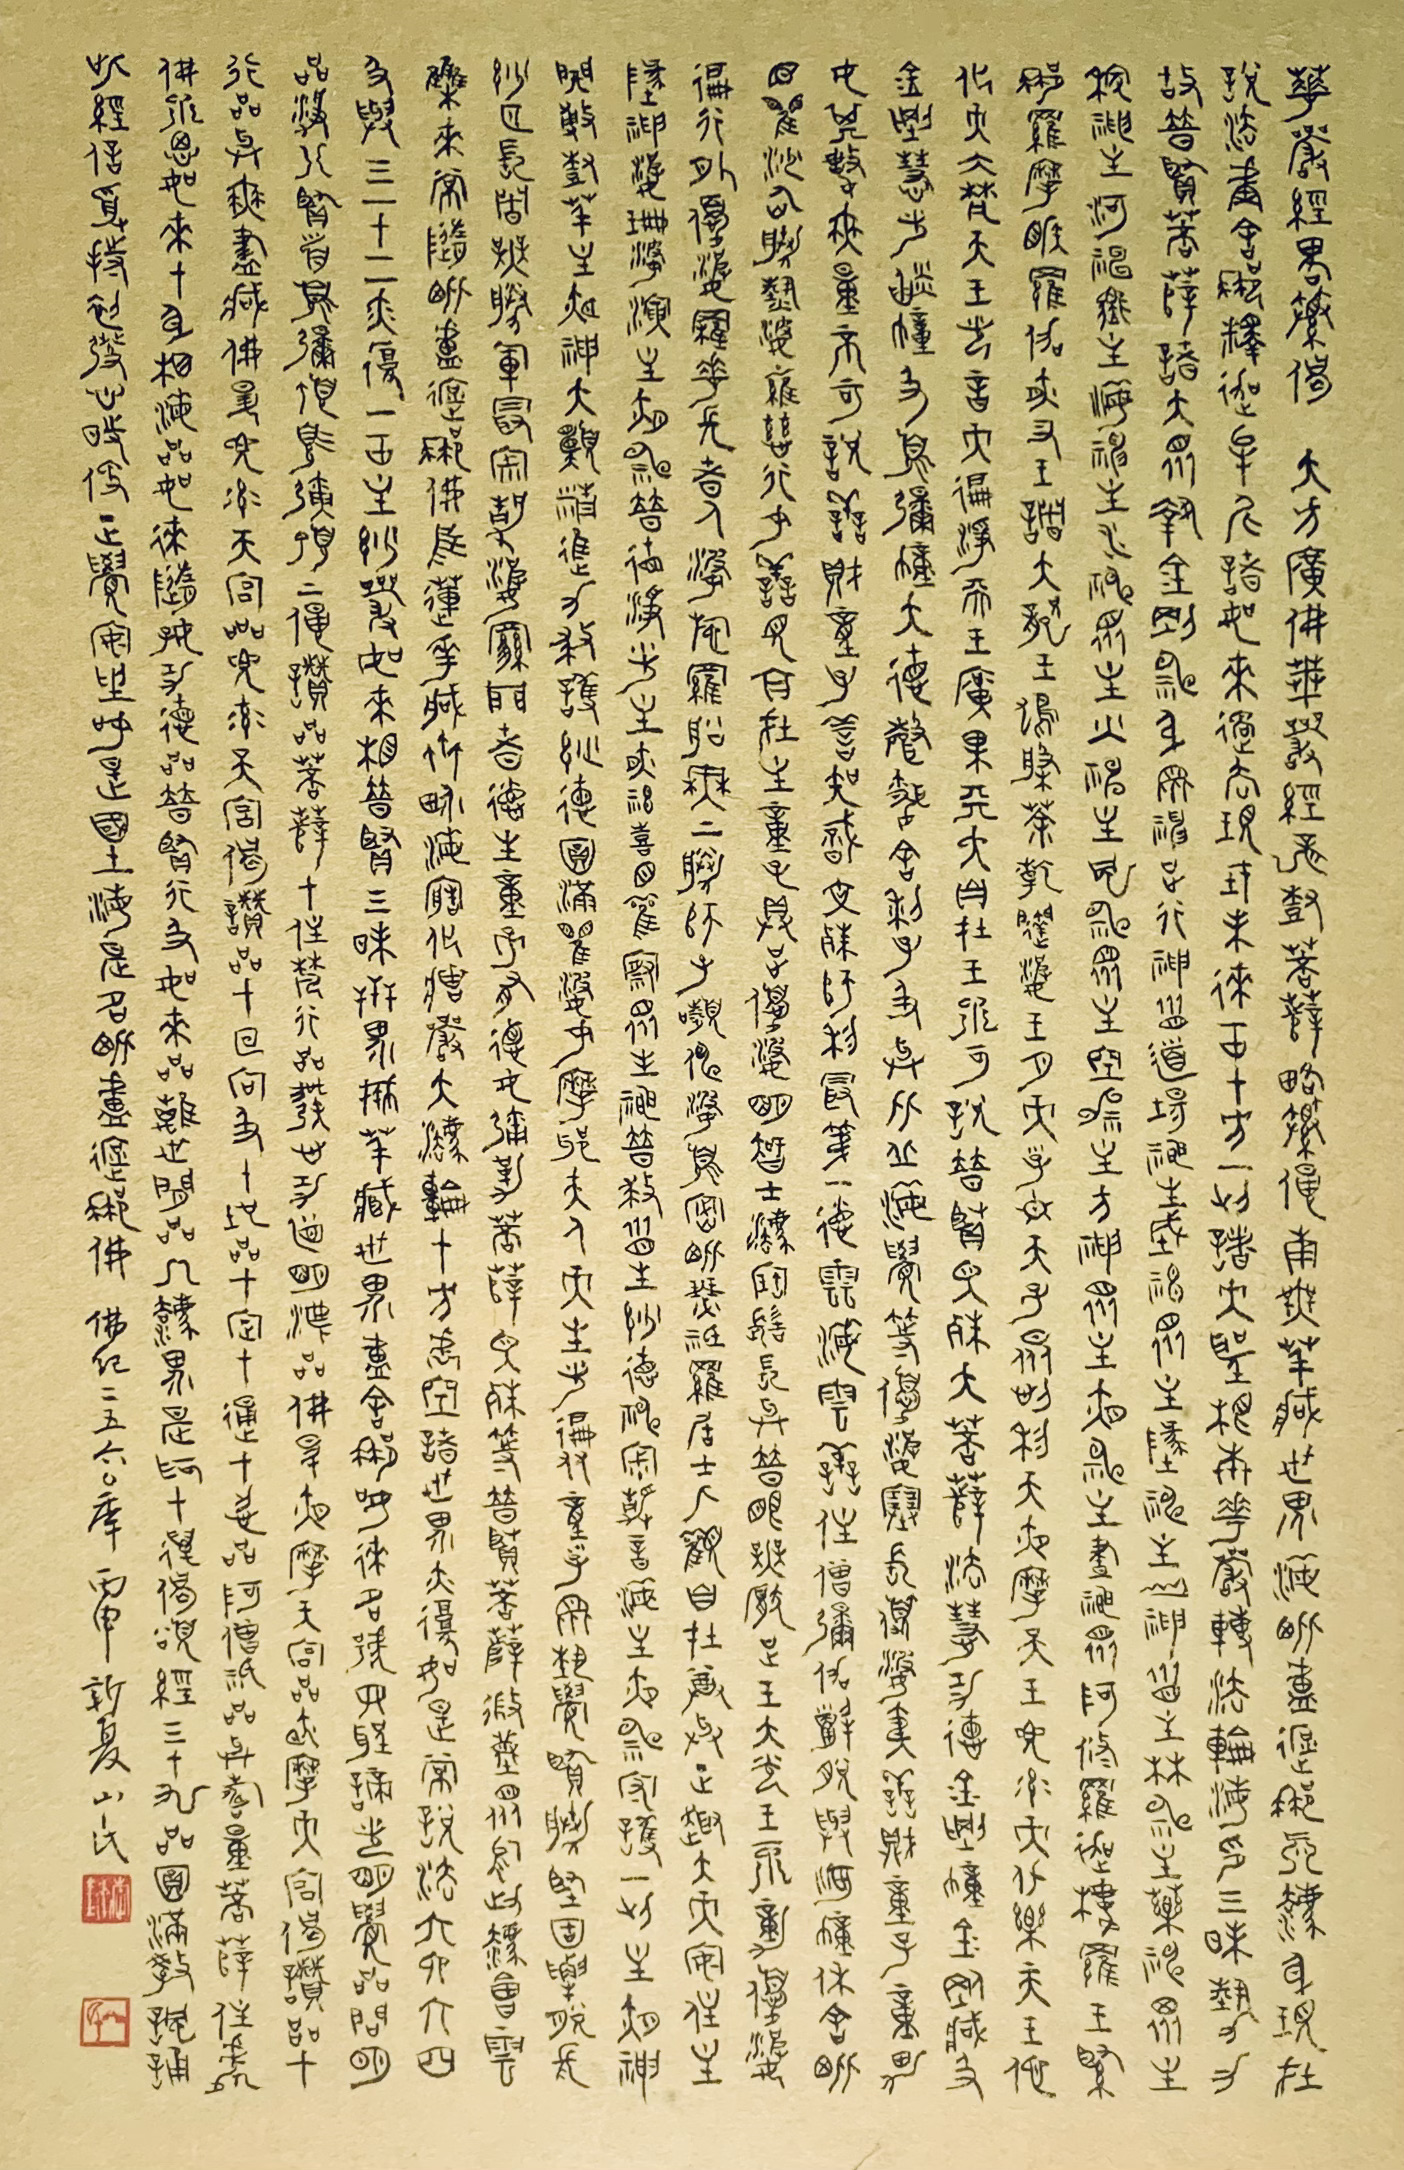 華嚴經畧纂偈 大方廣佛華嚴經龍樹菩薩略纂偈南無華藏世界海毗盧遮那真法身現在
說法盧舍那釋迦牟尼諸如來過去現在未來世十方一切諸大聖根本華嚴轉法輪海印三昧勢力
故普賢菩薩諸大眾執金剛神身眾神足行神眾道場神主城神眾主地神主山神眾主林神主藥神眾主
稼神主河神眾主海神主水神眾主火神主風神眾主空神主方神眾主夜神主晝神眾阿修羅迦樓羅王緊
那羅摩睺羅伽夜叉王諸大龍王鳩槃茶乾闥婆王月天子日天子眾忉利天夜摩天王兜率天化樂天王他
化天大梵天王光音天遍淨天王廣果天大自在王不可說普賢文殊大菩薩法慧功德金剛幢金剛藏及
金剛慧光焰幢及須彌幢大德聲聞舍利子及與比丘海覺等優婆塞長優婆夷善財童子童男
女其數無量不可說善財童子善知識文殊師利最第一德雲海雲善住僧彌伽解脫與海幢休舍毗
目瞿沙仙勝熱婆羅慈行女善見自在主童子具足優婆明智士法寶髻長與普眼無厭足王大光王不動優婆
遍行外優婆羅華長者人婆施羅船無上勝師子嚬伸婆須密毗瑟祇羅居士人觀自在尊與正趣大天安住主
地神婆珊婆演主夜神普德淨光主夜神喜目觀察眾生神普救眾生妙德神寂靜音海主夜神守護一切主夜神
開敷樹華主夜神大願精進力救護妙德圓滿瞿婆女摩耶夫人天主光遍友童子眾藝覺賢勝堅固解脫長
妙月長者無勝軍最寂靜婆羅門者德生童子有德女彌勒菩薩文殊等普賢菩薩微塵眾於此法會雲
集來常隨毗盧遮那佛於蓮華藏世界海造化莊嚴大法輪十方虛空諸世界亦復如是常說法六六六四
及與三一十一一亦復一世主妙嚴如來相普賢三昧世界成華藏世界盧舍那如來名號四聖諦光明覺品問明
品淨行賢首須彌頂須彌頂上偈讚品菩薩十住梵行品發心功德明法品佛昇夜摩天宮品夜摩天宮偈讚品十
行品與無盡藏佛昇兜率天宮品兜率天宮偈讚品十回向及十地品十定十通十忍品阿僧祇品與壽量菩薩住處
佛不思如來十身相海品如來隨好功德品普賢行及如來出離世間品入法界是為十萬偈頌經三十九品圓滿教諷誦
此經信受持初發心時便正覺安坐如是國土海是名毗盧遮那佛 佛紀二五六〇年 丙申 新夏 山氏